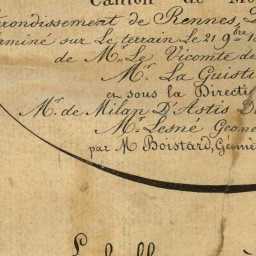 Canton de Mo
rrondissement de Rennes, D
erminé sur Le terrain Le 21 9bre 1
de Mr. Le Vicomte de
Mr. La Guisti
et sous la Directi
Mr. de Milan D'Astis D
Mr. Lesné Geome
par M Boistard, Géomè